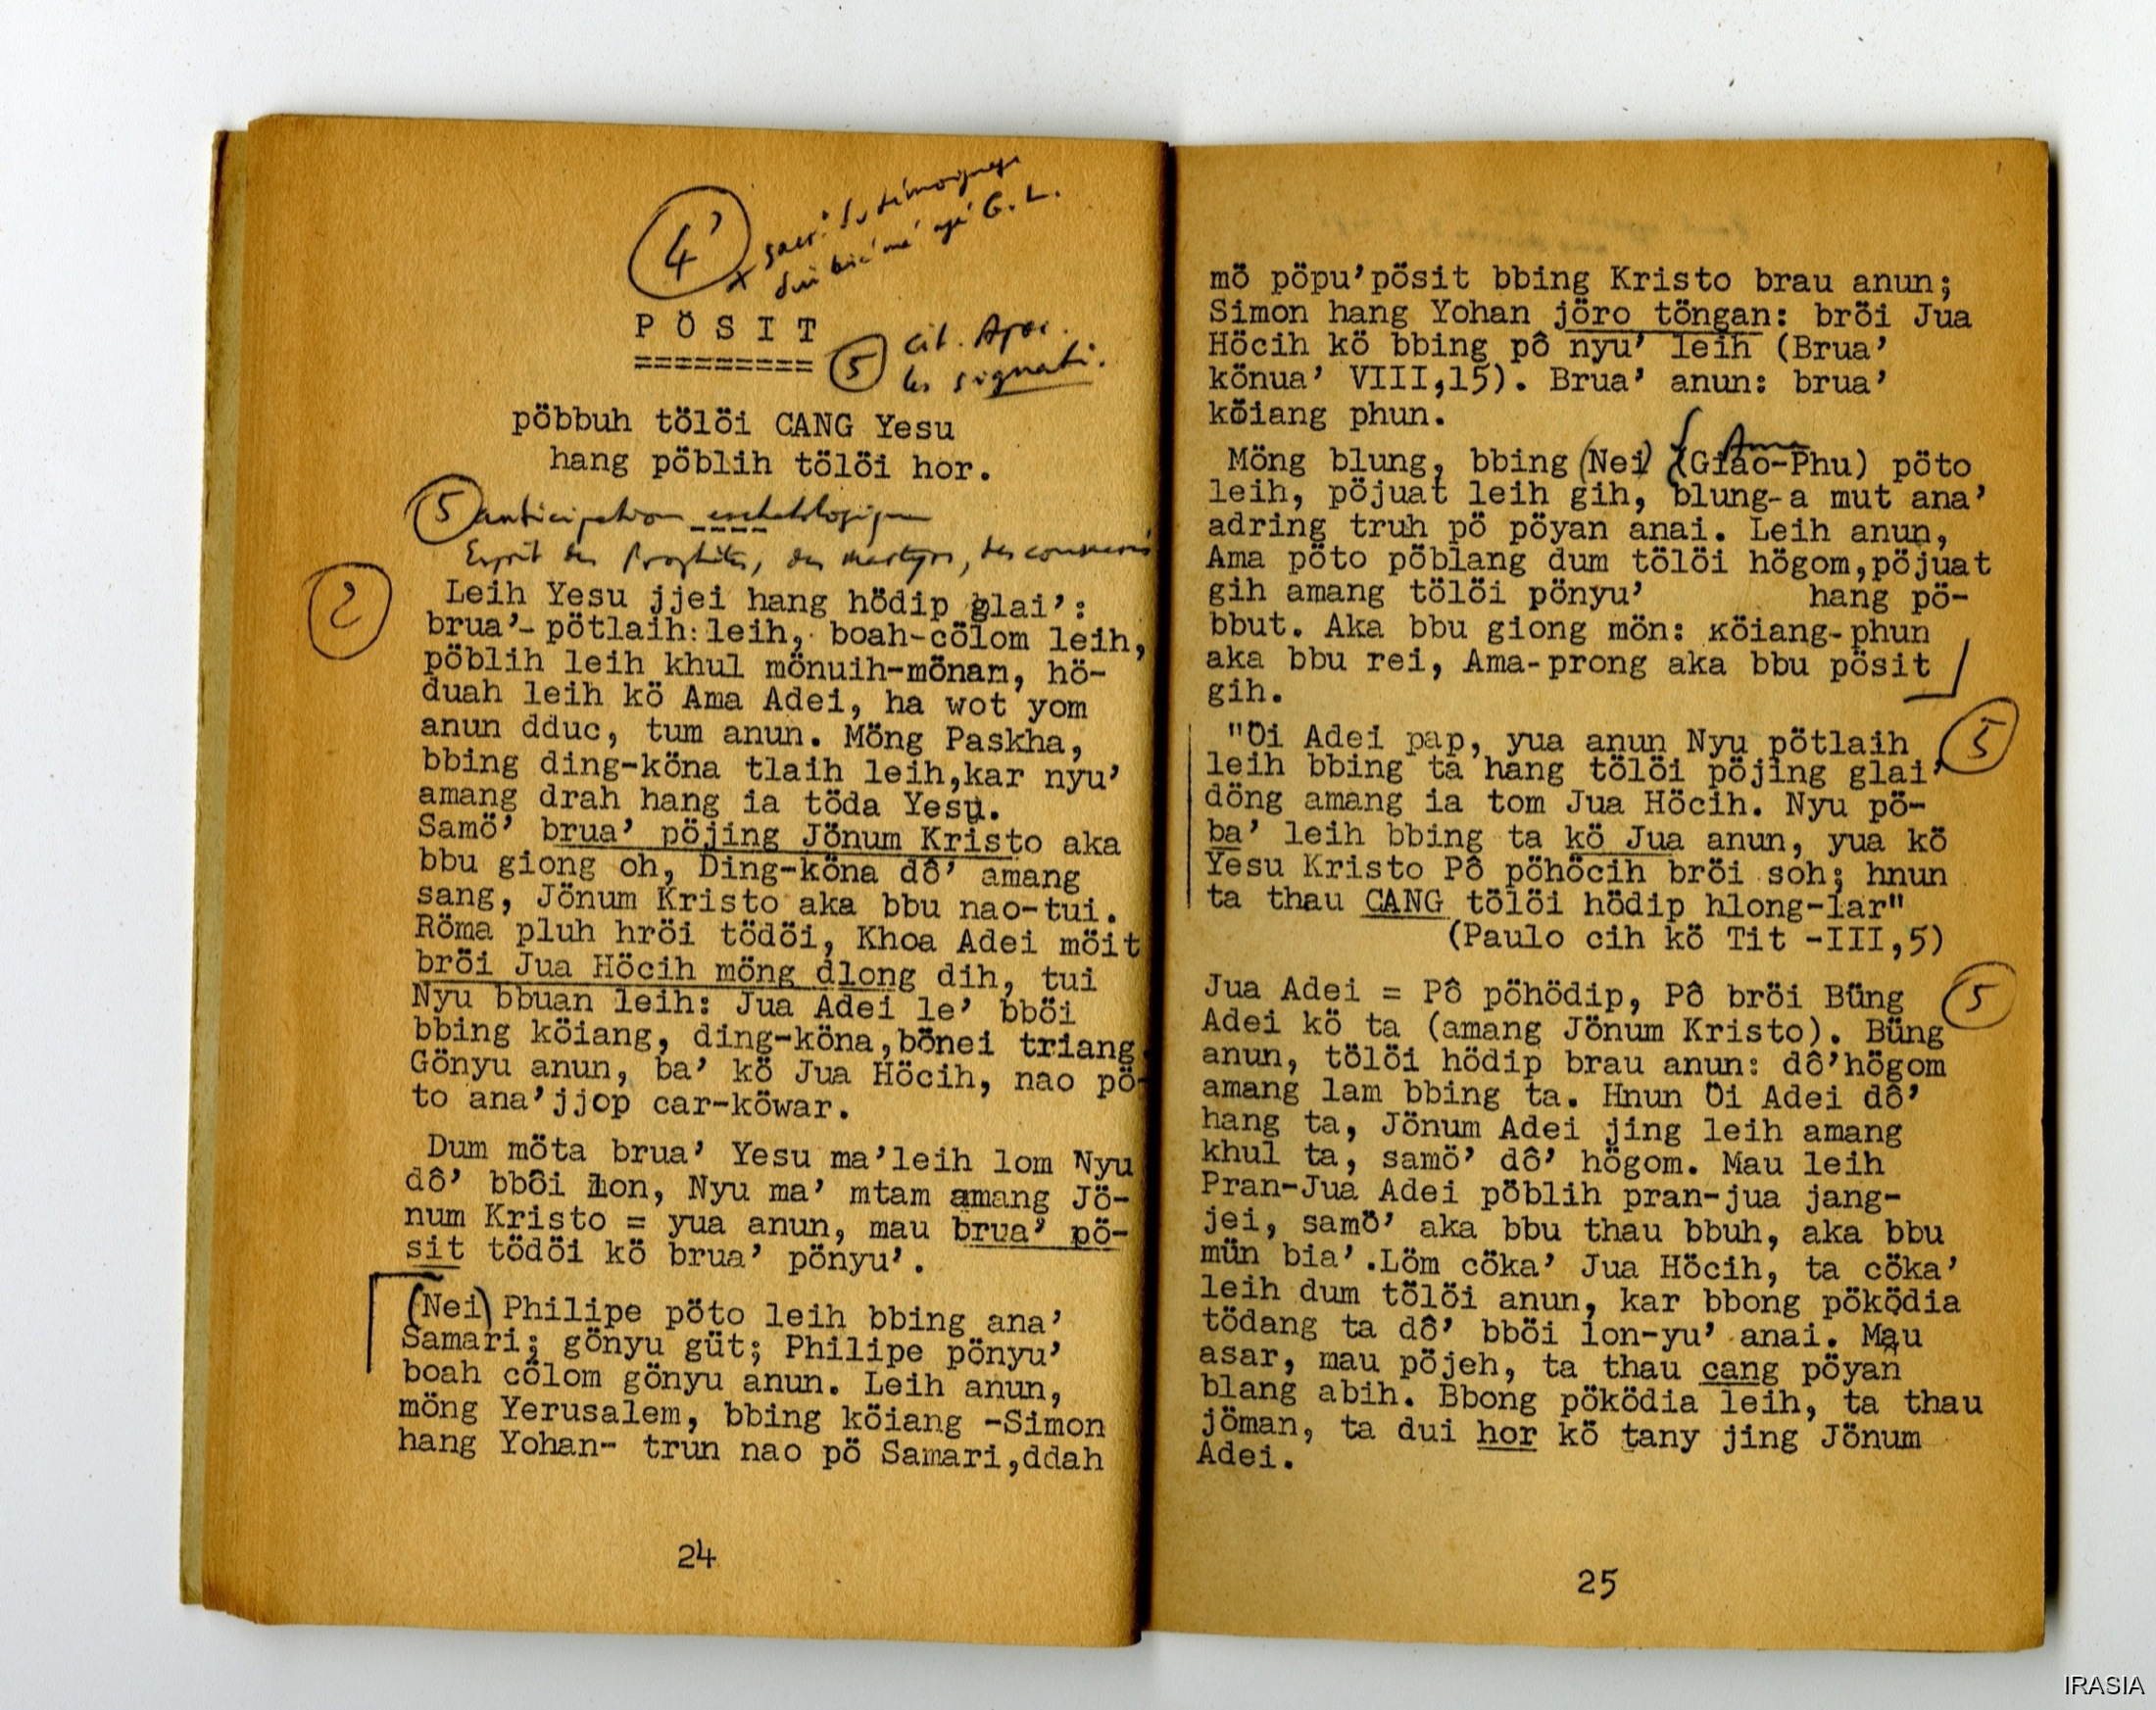 4'
P Ö S I T
=========
5 cit. Apoc.
les signati.
pöbbuh tölöi CANG Yesu
hang pöblih tölöi hor.
5 anticipation eschatologique
Esprit des Prophètes, des martyrs, des
2
Leih Yesu jjei hang hödip glai':
brua'-pötlaih:leih, boah-cölom leih,
pöblih leih khul mönuih-mönam, hö-
duah leih kö Ama Adei, ha wot yom
anun dduc, tum anun. Möng Paskha,
bbing ding-köna tlaih leih,kar nyu'
amang drah hang ia töda Yesu.
Samö' brua' pöjing Jönum Kristo aka
bbu giong oh, Ding-köna dô' amang
sang, Jönum Kristo aka bbu nao-tui.
Röma pluh hröi tödöi, Khoa Adei möit
bröi Jua Höcih möng dlong dih, tui
Nyu bbuan leih: Jua Adei le' bböi
bbing köiang, ding-köna,bönei triang.
Gönyu anun, ba' kö Jua Höcih, nao pö-
to ana'jjop car-köwar.
Dum möta brua' Yesu ma'leih lom Nyu
dô' bbôi lon, Nyu ma' mtam amang Jö-
num Kristo = yua anun, mau brua' pö-
sit tödöi kö brua' pönyu'.
(Nei) Philipe pöto leih bbing ana'
Samari; gönyu güt; Philipe pönyu'
boah cölom gönyu anun. Leih anun,
möng Yerusalem, bbing köiang -Simon
hang Yohan- trun nao pö Samari,ddah
24
mö pöpu'pösit bbing Kristo brau anun;
Simon hang Yohan jöro töngan: bröi Jua
Höcih kö bbing pô nyu' leih (Brua'
könua' VIII,15). Brua' anun: brua'
köiang phun.
Ama
Möng blung, bbing (Nei) (Giao-Phu) pöto
leih, pöjuat leih gih, blung-a mut ana'
adring truh pö pöyan anai. Leih anun,
Ama pöto pöblang dum tölöi högom,pöjuat
gih amang tölöi pönyu' hang pö-
bbut. Aka bbu giong mön: köiang-phun
aka bbu rei, Ama-prong aka bbu pösit
gih.
5
"Öi Adei pap, yua anun Nyu pötlaih
leih bbing ta hang tölöi pöjing glai'
döng amang ia tom Jua Höcih. Nyu pö-
ba' leih bbing ta kö Jua anun, yua kö
Yesu Kristo Pô pöhöcih bröi soh; hnun
ta thau CANG tölöi hödip hlong-lar"
(Paulo cih kö Tit -III,5)
5
Jua Adei = Pô pöhödip, Pô bröi Büng
Adei kö ta (amang Jönum Kristo). Büng
anun, tölöi hödip brau anun: dô'högom
amang lam bbing ta. Hnun Öi Adei dô'
hang ta, Jönum Adei jing leih amang
khul ta, samö' dô' högom. Mau leih
Pran-Jua Adei pöblih pran-jua jang-
jei, samö' aka bbu thau bbuh, aka bbu
mün bia'.Löm cöka' Jua Höcih, ta cöka'
leih dum tölöi anun, kar bbong pöködia
tödang ta dô' bböi lon-yu' anai. Mau
asar, mau pöjeh, ta thau cang pöyan
blang abih. Bbong pöködia leih, ta thau
jöman, ta dui hor kö tany jing Jönum
Adei.
25
IRASIA